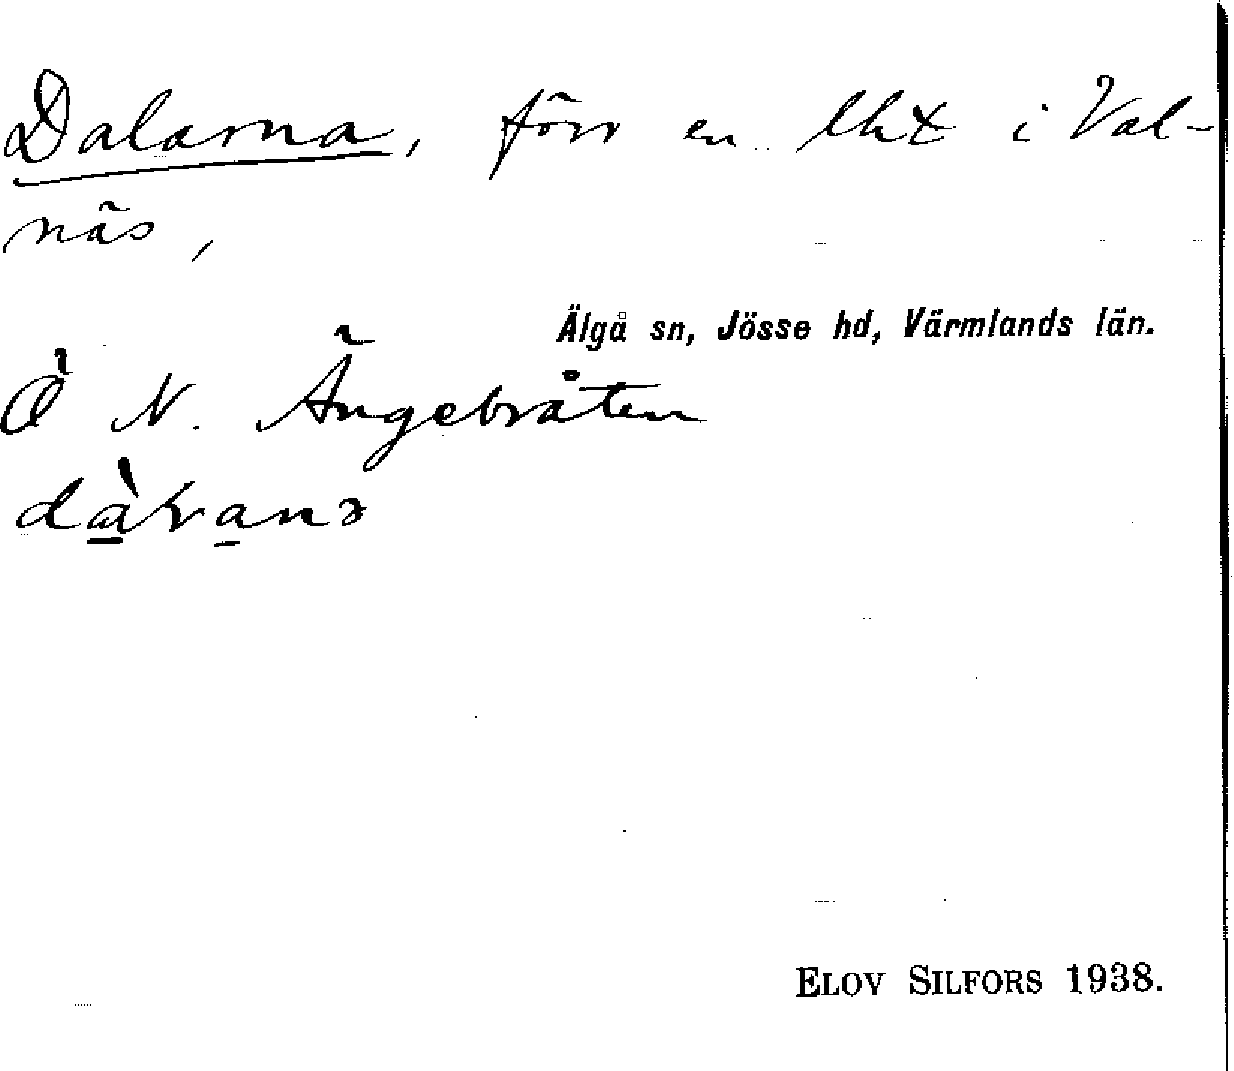 Dalarna, förr en lht i Val-
näs,
Älgå sn, Jösse hd, Värmlands län.
Ö N. Ängebråten
ELOV SILFORS 1938.